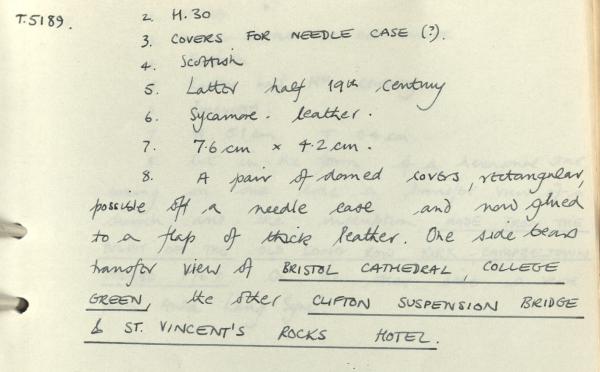 T.5189.
2. H.30
3. COVERS FOR NEEDLE CASE (?).
4. Scottish
5. Latter half 19th century
6. Sycamore. leather.
7. 7.6 cm × 4.2 cm.
8. A pair of domed covers, rectangular,
possible off a needle case and now glued
to a flap of thick leather. One side bears
transfer view of BRISTOL CATHEDRAL, COLLEGE
GREEN, the other CLIFTON SUSPENSION BRIDGE
& ST. VINCENT'S ROCKS HOTEL.